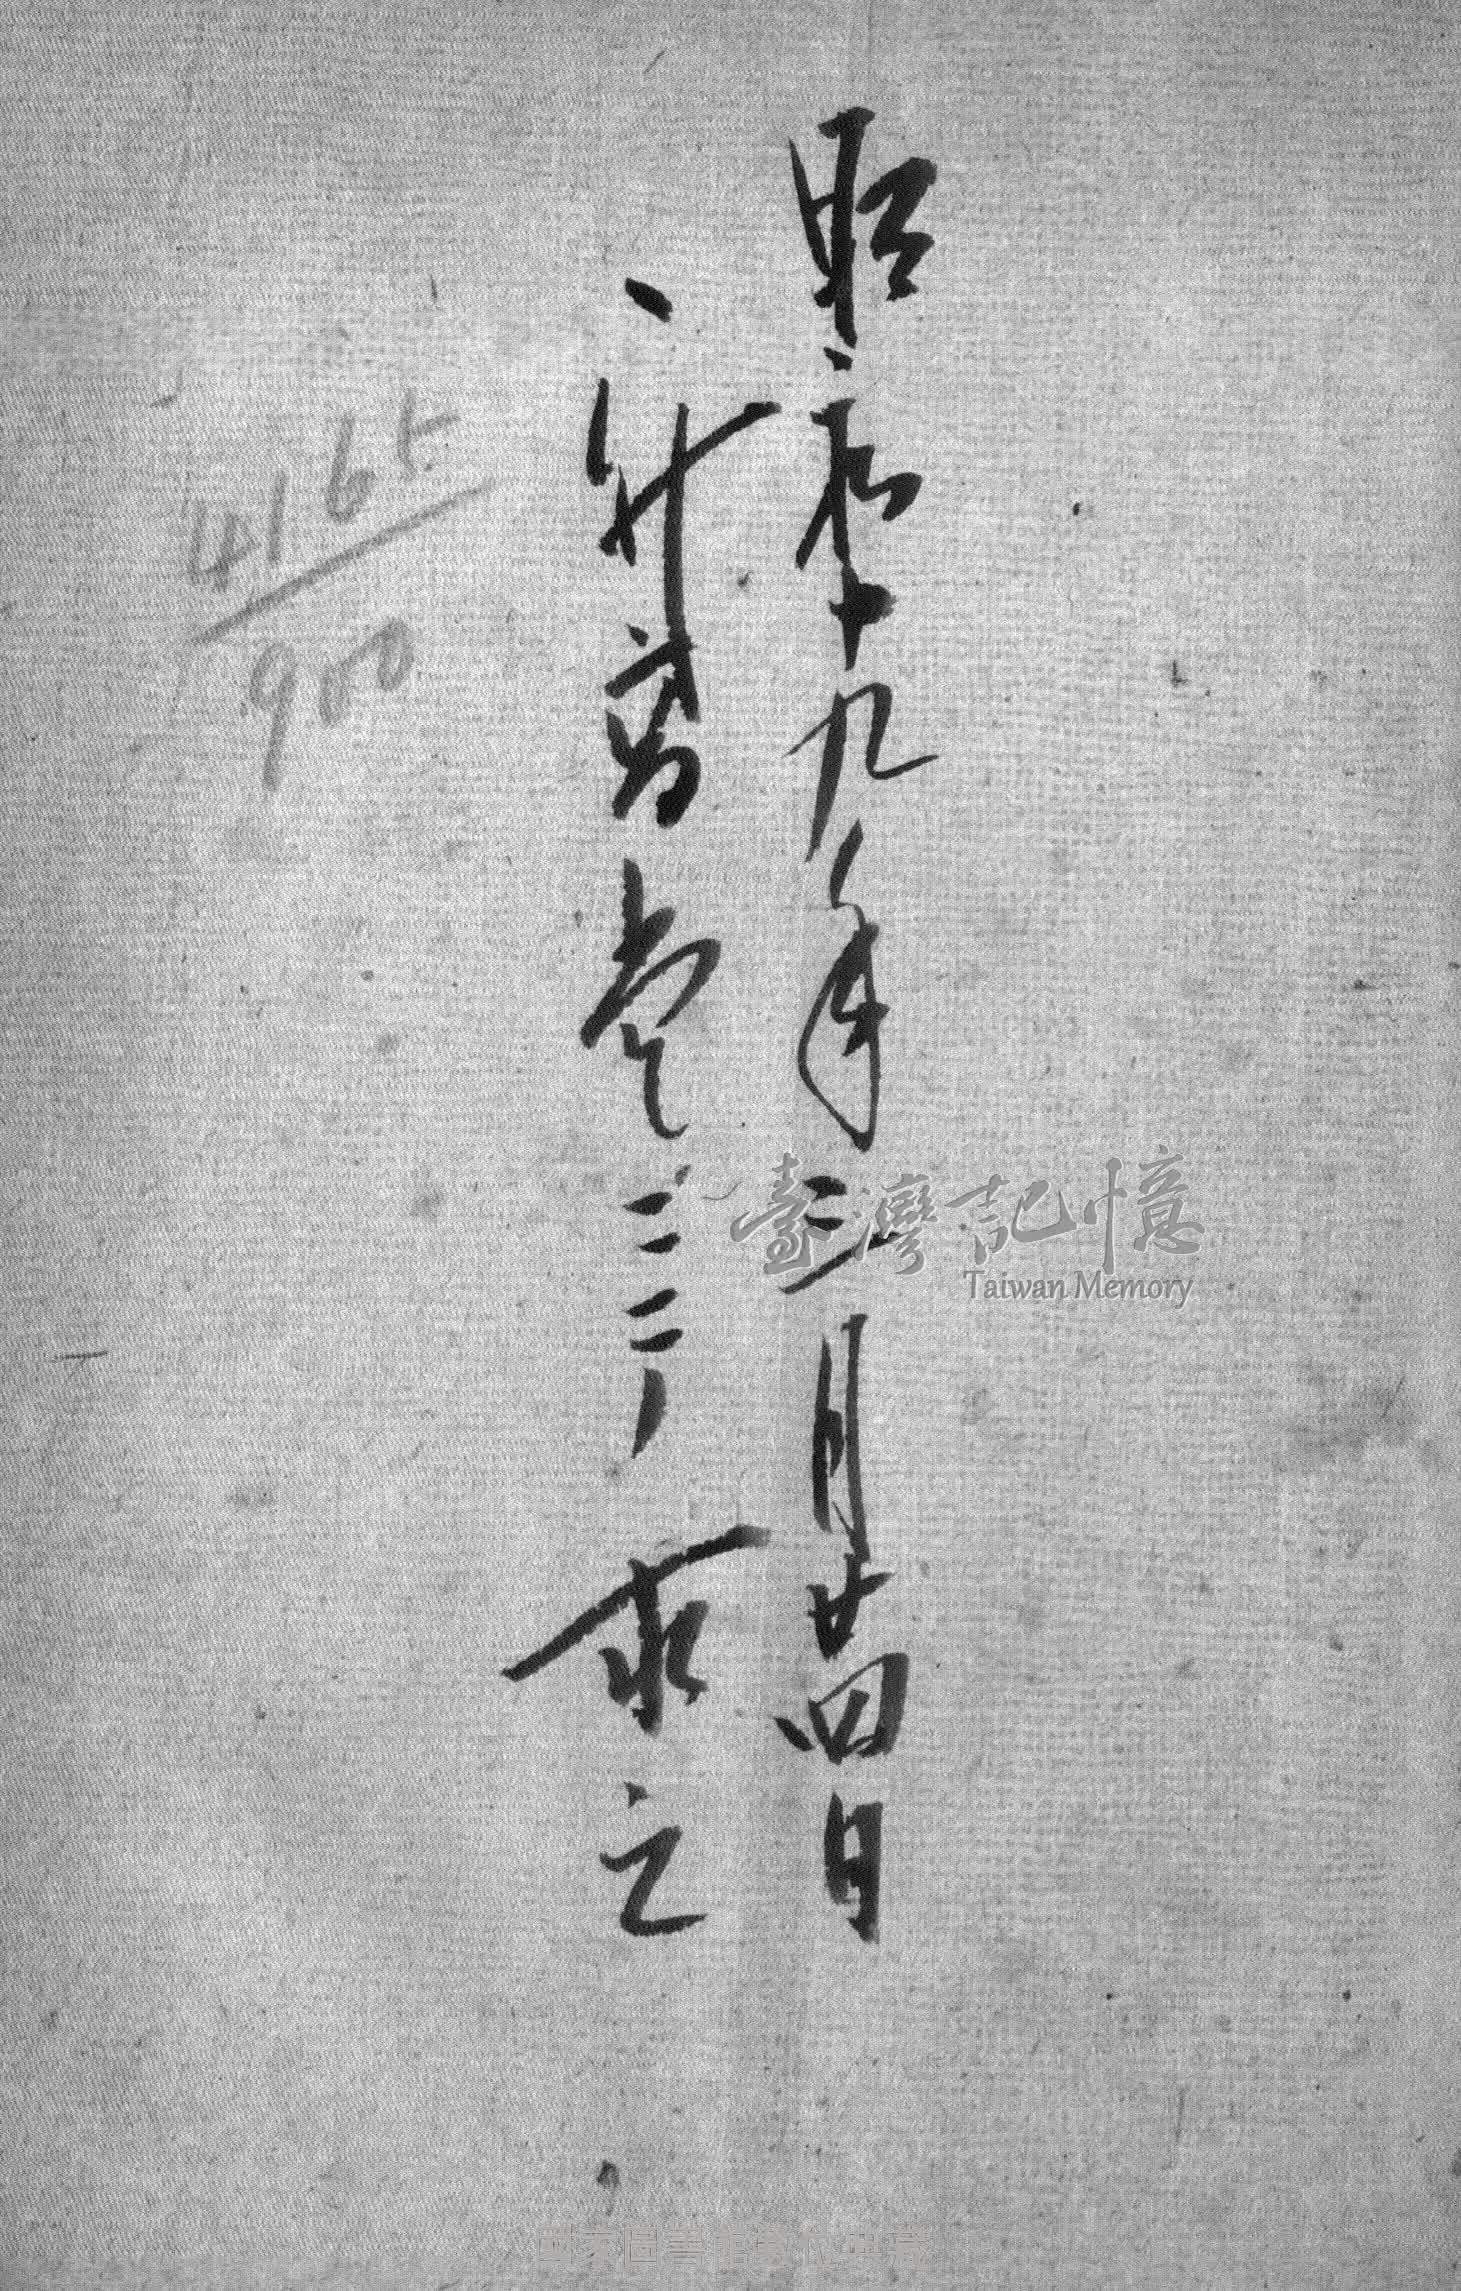 昭和十九年三月廿四日
、於萬巻ニテ求之
4165
900
臺灣記憶
Taiwan Memory
國家圖書館數位典藏